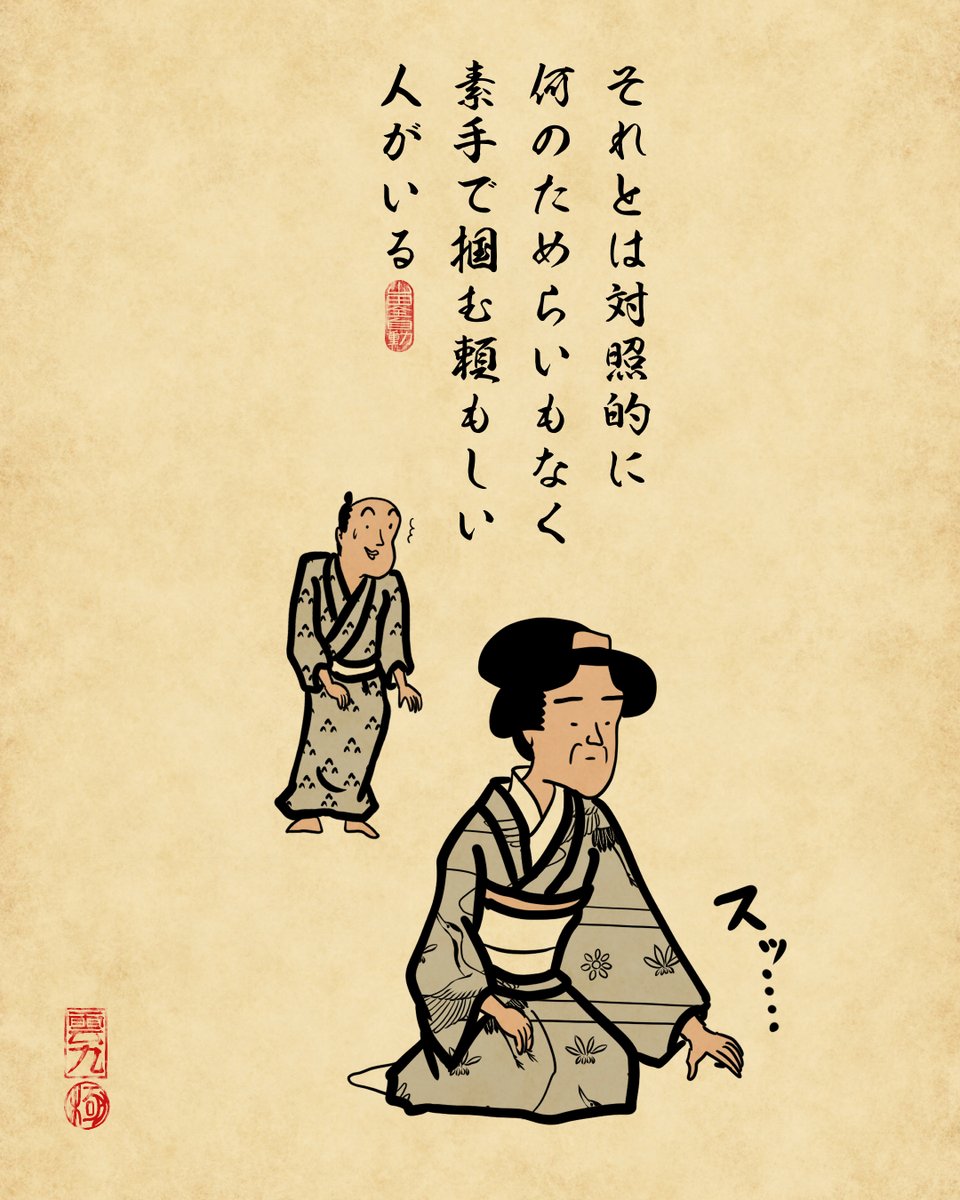 それとは対照的に
何のためらいもなく
素手で掴む頼もしい
人がいる
スッ・・・・